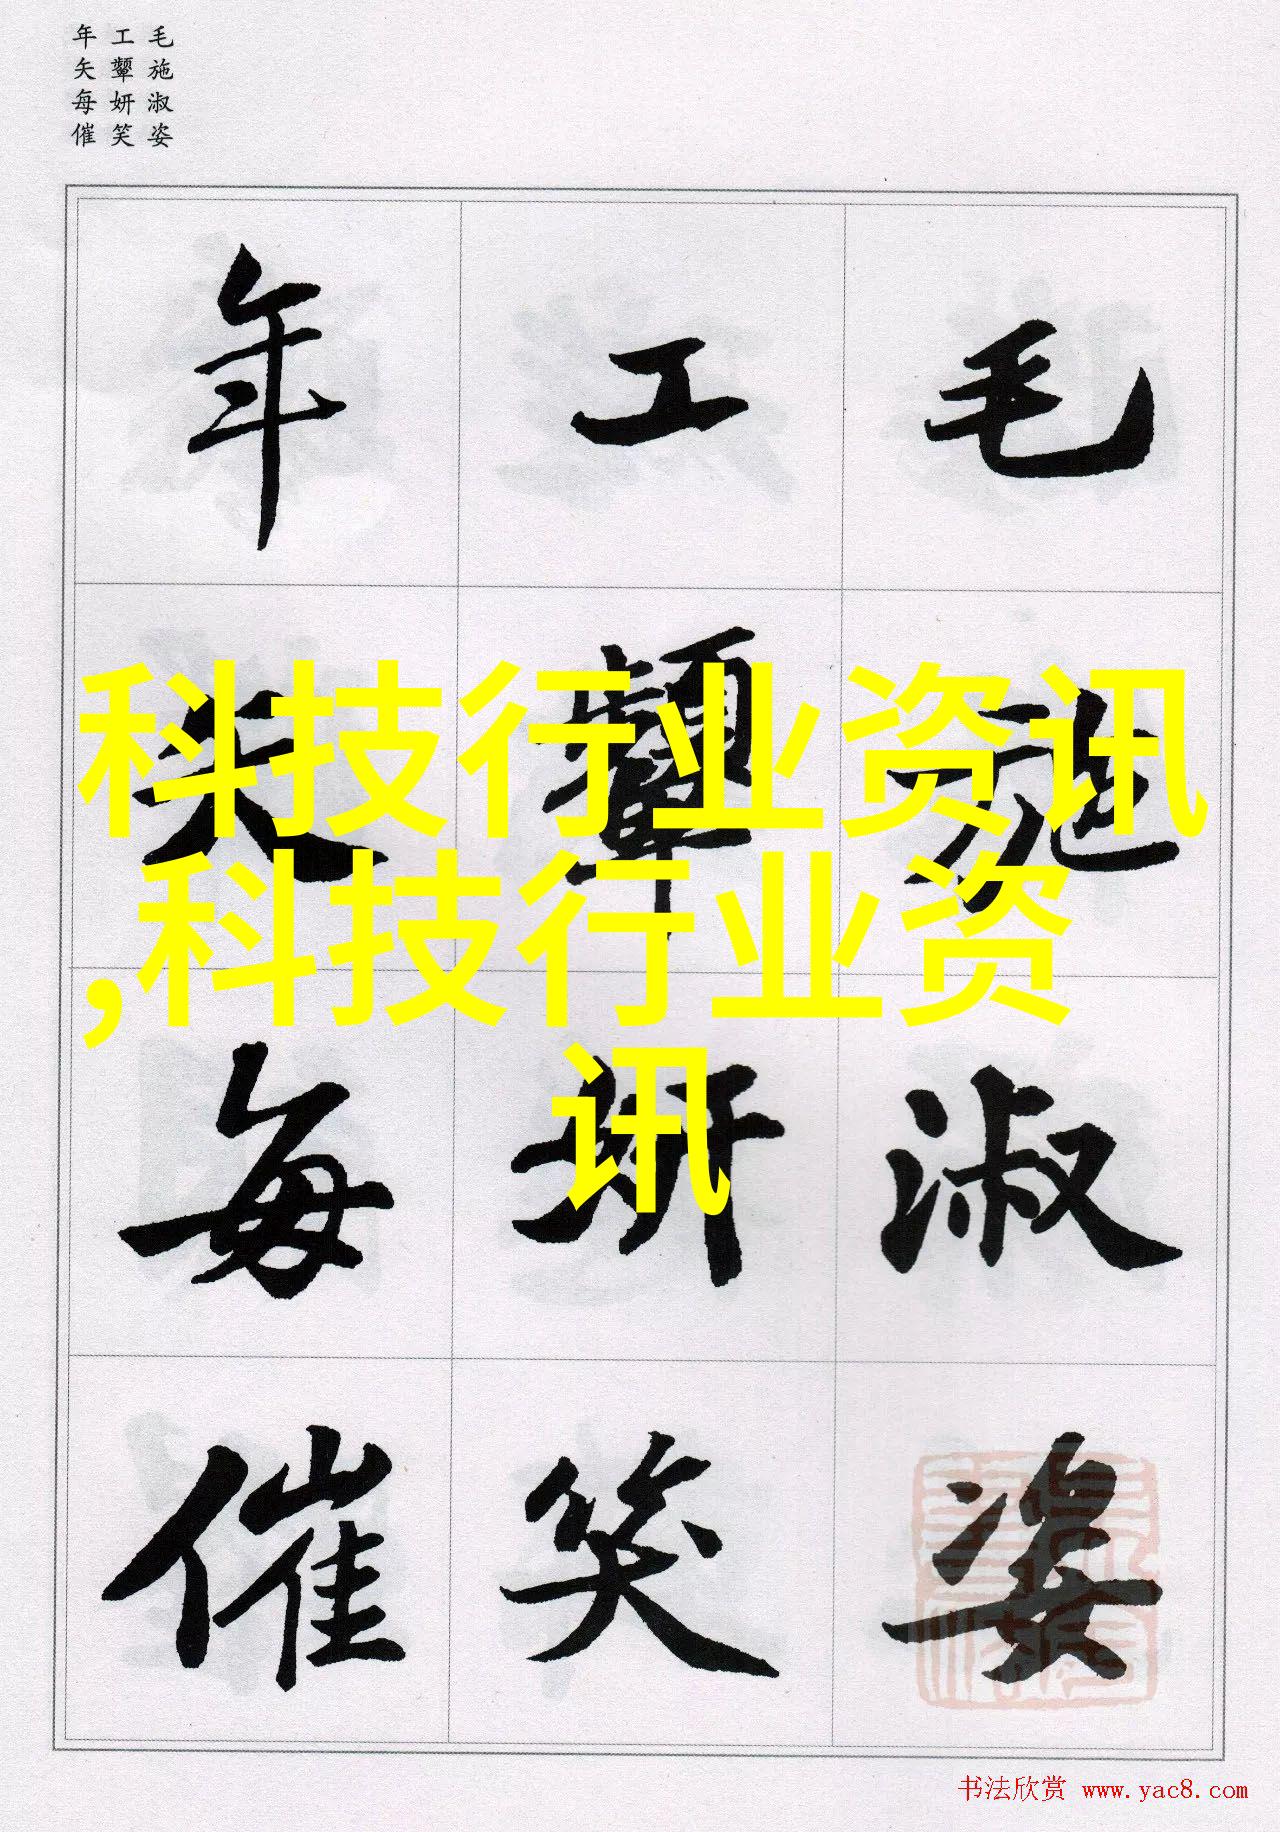 毛施淑姿
工颦妍笑
年矢每催
毛施淑姿
工颦妍笑
年矢每催
科技行业资讯
,科技行业资
讯
书法欣赏 www.yac8.com